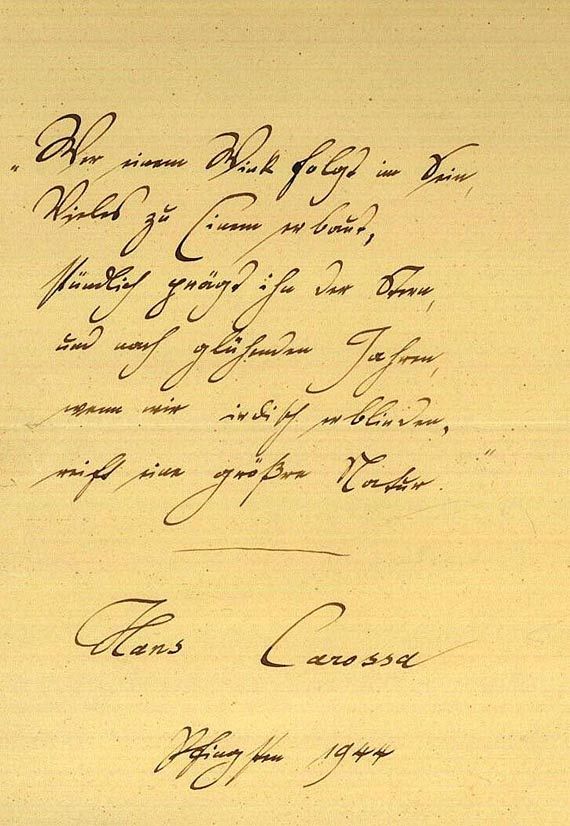 „Wer einem Wink folgt im Sein,
Vieles zu Einem erbaut,
stündlich prägt ihn der Stern,
und nach glühenden Jahren,
wenn wir irdisch erblinden,
reift eine größre Natur."
Hans Carossa
Pfingsten 1944